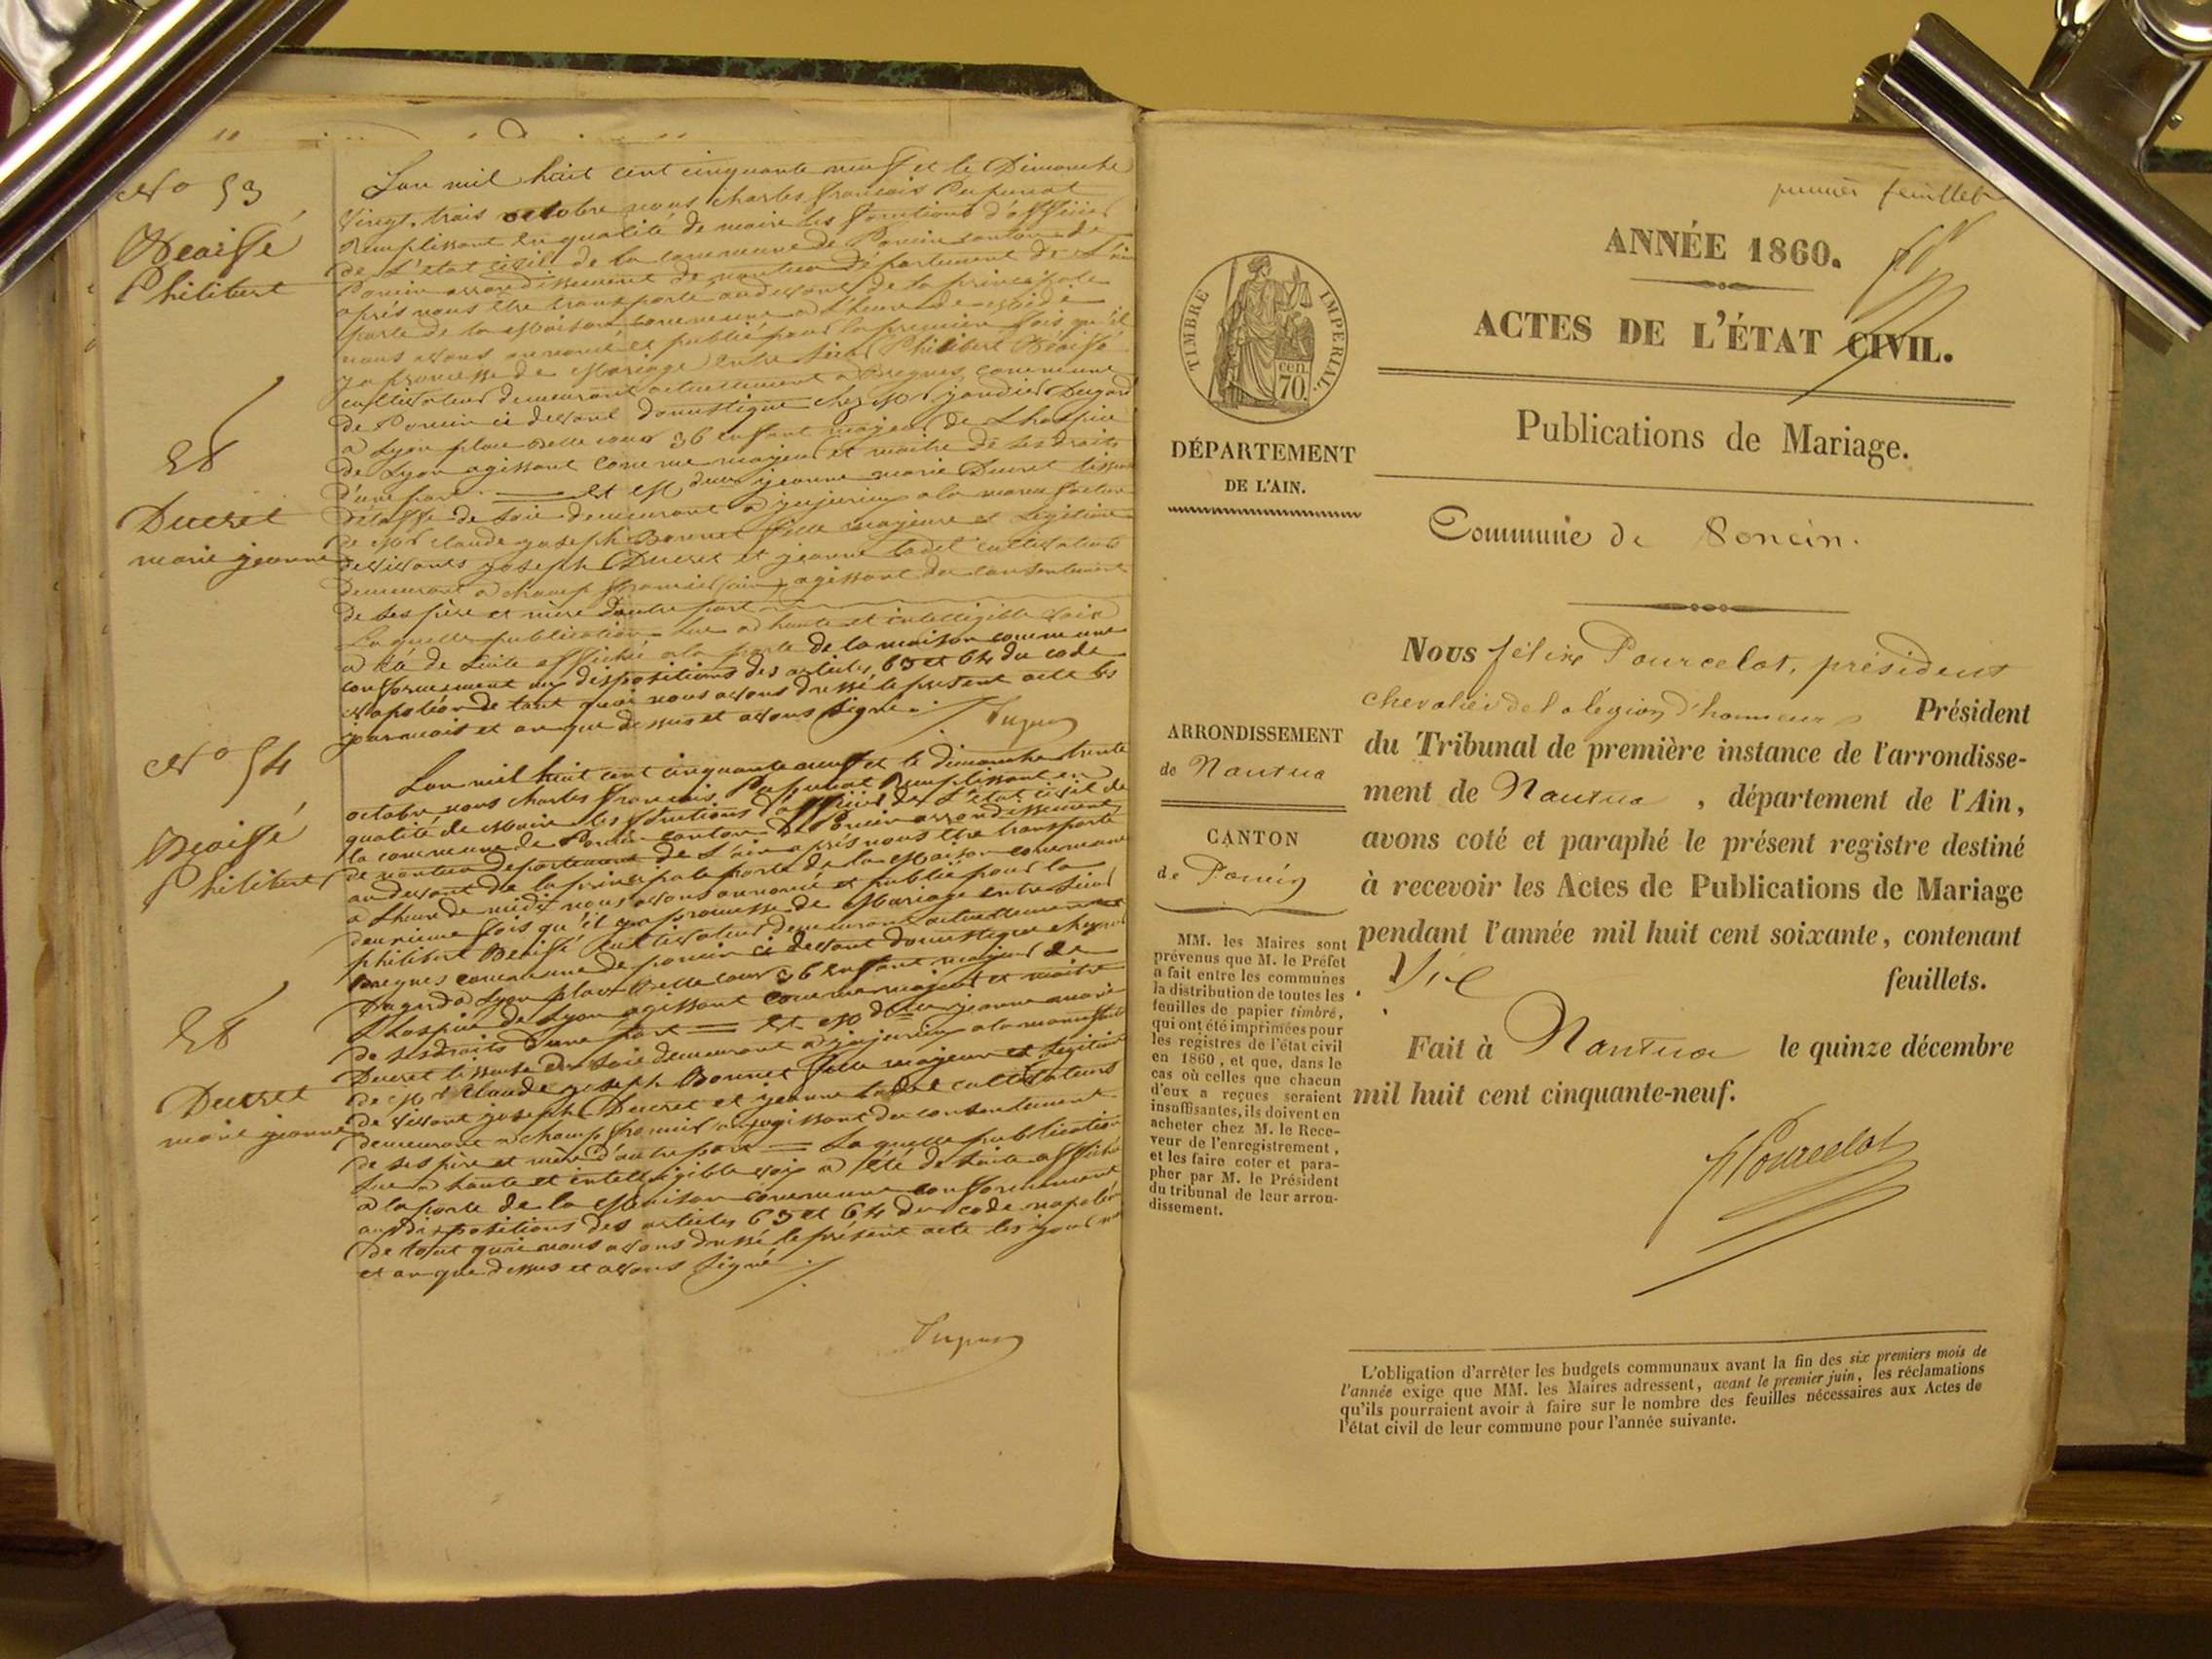 No 53
Philibert
Et
Ducret
marie jeanne
L'an mil huit cent cinquante neuf et le Dimanche
Vingt-trois octobre nous charles françois
Remplissant en qualité de maire les fonctions d'officier
de L'état civil de la commune de Poncin canton de
Poncin arrondissement de nantua département de L'ain
après nous être transporté audevant de la principale
porte de la Maison commune a L'heure de midi
nous avons annoncé et publié pour la première fois qu'il
y a promesse de Mariage entre sieur Philibert
cultivateur demeurant actuellement a Bregnes commune
de Poncin ci devant domestique chez Mr
a Lyon place Belle cour 36 enfant majeur de L'hospice
de Lyon agissant comme majeur et maitre de ses droits
d'une part. Et jeanne marie Ducret
d'étoffe de soie demeurant a jujurieux a la manufacture
de Mr Claude joseph Bonnet fille majeure et Légitime
des vivants joseph Ducret et jeanne cultivateurs
demeurant a champ fromier (ain) agissant du consentement
de ses père et mère d'autre part
La quelle publication lue a haute et intelligible voix
a été de suite affichée a la porte de la maison commune
conformement aux dispositions des articles 63 et 64 du code
napoléon de tout quoi nous avons dressé le présent acte les
jour mois et an que dessus et avons signé.
No 54
Philibert
Et
Ducret
marie jeanne
L'an mil huit cent cinquante neuf et le dimanche trente
octobre nous charles françois Remplissant en
qualité de Maire les fonctions d'officier de L'état civil de
la commune de Poncin canton de Poncin arrondissement
de nantua departement de L'ain après nous être transporté
au devant de la principale porte de la Maison commune
a L'heure de midi nous avons annoncé et publié pour la
deuxième fois qu'il y a promesse de Mariage entre sieur
philibert cultivateur demeurant actuellement
Bregnes commune de poncin ci devant domestique chez
a Lyon place Belle cour 36 enfant majeur de
L'hospice de Lyon agissant comme majeur et maitre
de ses droits d'une part Et jeanne marie
Ducret tisseuse en soie demeurant a jujurieux a la manufacture
de Mr Claude joseph Bonnet fille majeure et légitime
de vivant joseph Ducret et jeanne cultivateurs
demeurant a champ fromier agissant du consentement
de ses père et mère d'autre part La quelle publication
lue a haute et intelligible voix a été de suite affichée
a la porte de la Maison commune conformement
aux dispositions des articles 63 et 64 du code napoléon
de tout quoi nous avons dressé le présent acte les jour
et an que dessus et avons signé
premier feuillet
ANNÉE 1860.
ACTES DE L'ÉTAT CIVIL.
Publications de Mariage.
TIMBRE IMPERIAL.
cen.
70.
DÉPARTEMENT
DE L'AIN.
Commune de Poncin.
ARRONDISSEMENT
de Nantua
CANTON
de Poncin
MM. les Maires sont
prévenus que M. le Préfet
a fait entre les communes
la distribution de toutes les
feuilles de papier timbré,
qui ont été imprimées pour
les registres de l'état civil
en 1860, et que, dans le
cas où celles que chacun
d'eux a reçues seraient
insuffisantes, ils doivent en
acheter chez M. le Rece-
veur de l'enregistrement,
et les faire coter et para-
pher par M. le Président
du tribunal de leur arron-
dissement.
Nous félix Pourcelot, président
chevalier de la légion d'honneur Président
du Tribunal de première instance de l'arrondisse-
ment de Nantua , département de l'Ain,
avons coté et paraphé le présent registre destiné
à recevoir les Actes de Publications de Mariage
pendant l'année mil huit cent soixante, contenant
feuillets.
Fait à Nantua le quinze décembre
mil huit cent cinquante-neuf.
Pourcelot
L'obligation d'arrêter les budgets communaux avant la fin des six premiers mois de
l'année exige que MM. les Maires adressent, avant le premier juin, les réclamations
qu'ils pourraient avoir à faire sur le nombre des feuilles nécessaires aux Actes de
l'état civil de leur commune pour l'année suivante.